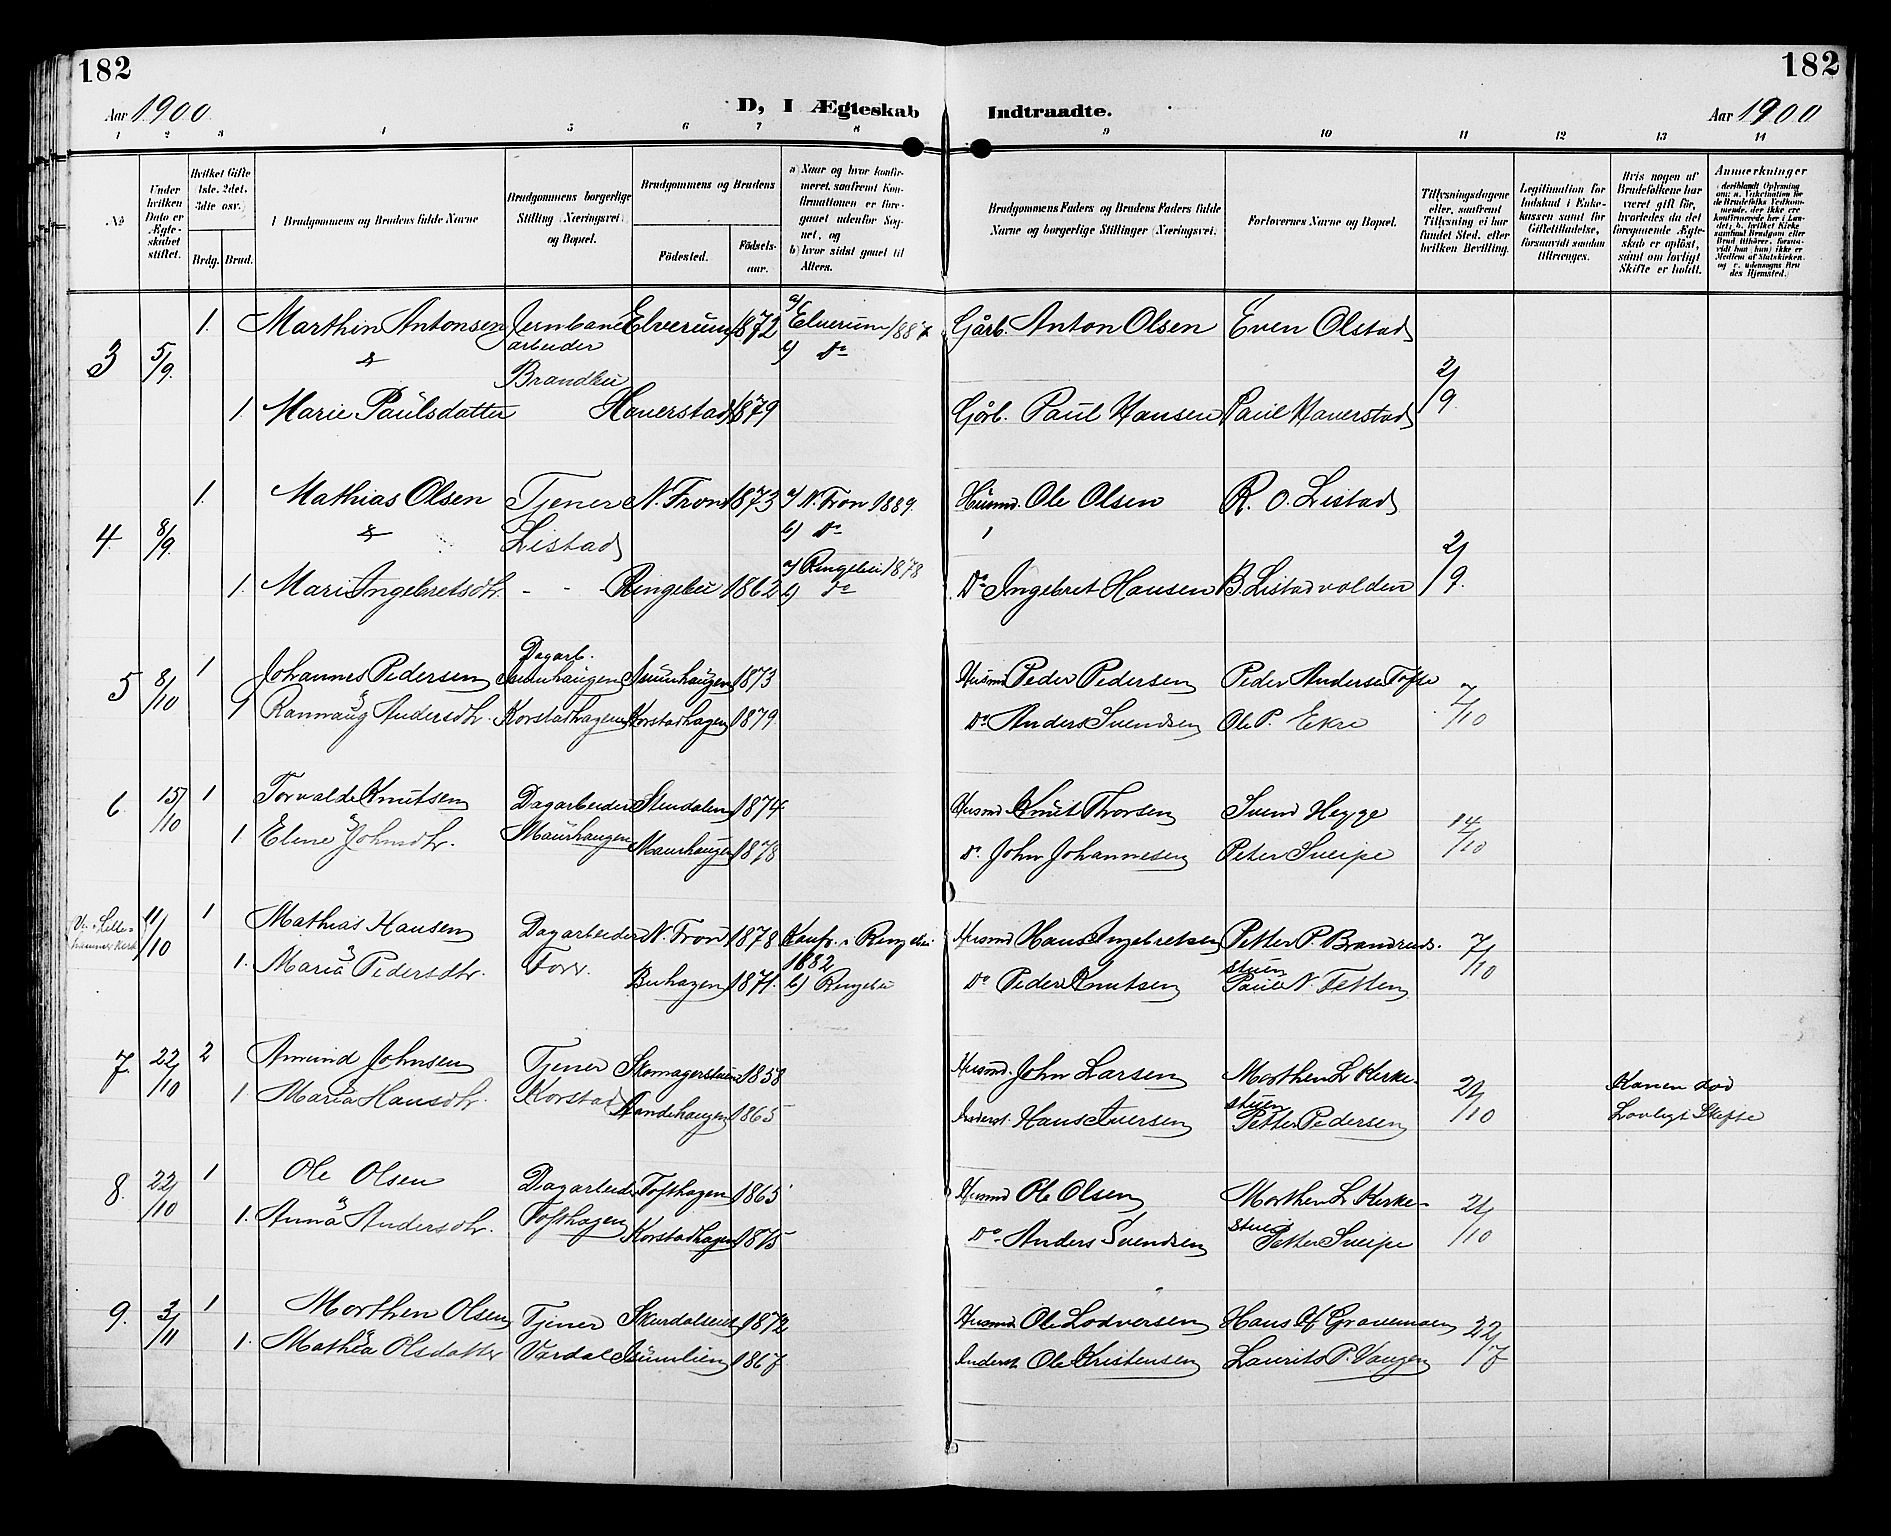 182
182
Aar 1900
D, I Ægteskab
Indtraadte.
Aar 1900
1 2 3 4 5 6 7 8 9 10 11 12 13 14
№
Under hvilken Dato er Ægteskabet stiftet.
Hvilket Gifte 1ste, 2det, 3die osv.
Brdg. Brud.
Brudgommens og Brudens fulde Navne
Brudgommens borgerlige Stilling (Næringsvei) og Bopæl.
Brudgommens og Brudens
Fødested.
Fødselsaar.
a) Naar og hvor konfirmeret, samfremt Konfirmationen er foregaaet udenfor Sognet, og
b) hvor sidst gaaet til Alters.
Brudgommens Faders og Brudens Faders fulde Navne og borgerlige Stillinger (Næringsvei).
Forlovernes Navne og Bopæl.
Tillysningsdagene eller, samfremt Tillysning ei har fundet Sted, efter hvilken Bevilling.
Legitimation for Indskud i Enkekassen samt for Giftetilladelse, forsaavidt saadan tiltrænges.
Hvis nogen af Brudefolkene har været gift før, hvorledes da det foregaaende Ægteskab er opløst, samt om lovligt Skifte er holdt.
Anmerkninger
3 5/9. 1. Marthin Antonsen Jernbane Elverum 1872 a) Elverum 1887 Gårb. Anton Olsen Even Olstad
& arbeider b) do
Brandbu 2/9
1. Marie Paulsdatter Haverstad 1879 Gårb. Paul Hansen Paul Haverstad
1. Mathias Olsen Tjener N. Fron 1873 a) N. Fron 1889. Husmd. Ole Olsen R. O. Listad
4. 8/9. & Listad b) do 2/9.
1. Mari Ingebretsdtr. - - Ringebu 1862 a) Ringebu 1878 b) do Do Ingebret Hansen B. Listadvolden
5 8/10 1 Johannes Pedersen Dagarb. 1873 Husmd Peder Pedersen Peder Anderse Tofte 7/10
1 Rannaug Andersdtr. Korstadhagen Korstadhagen 1879. Do. Anders Svendsen Ole P. Ekre
6. 15/10 1 Torvald Knutsen Dagarbeider Stendalen 1874 Husmd Knut Thorsen Svend Hegge 14/10
1 Eline Johnsdtr. Maurhaugen Maurhaugen 1878 Do. John Johannesen Peter Sveipe
V. Lillehammer Kirke 11/10 1 Mathias Hansen Dagarbeider N. Fron 1878 Konfr. i Ringebu 1882 Husmd Hans Ingebretsen Petter P. Brandrudstuen 7/10
1. Maria Pedersdtr. Forr. Buhagen 1871. b) Ringebu Do Peder Knutsen Paul N. Fetten
7. 22/10 2 Amund Johnsen Tjener Skomagerstuen 1858 Husmd. John Larsen Morthen L. Kirkestuen 21/10 Konen død
1 Maria Hansdtr. Korstad Sandehaugen 1865 Inderst. Hans Iversen Petter Pedersen Lovligt Skifte
8. 22/10 1 Ole Olsen Dagarbeider Tofthagen 1865 Husmd Ole Olsen Morthen L. Kirkestuen 21/10
1. Anna Andersdtr. Tofthagen Korstadhagen 1875 Do. Anders Svendsen Petter Sveipe
9. 3/11 1 Morthen Olsen Tjener Skurdalseiet 1872 Husmd Ole Lodversen Hans Gravemoen 22/7
1. Mathea Olsdatter Vardal 1867 Inderst. Ole Kristensen Laurits P. Vangen